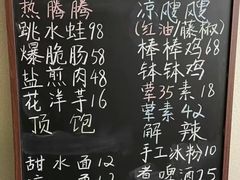 热腾腾
跳水蛙98
爆脆肠58
盐煎肉48
花洋芋16
顶饱
甜水面12
凉飕飕
(红油/藤椒)
棒棒鸡68
钵钵鸡
荤35素18
荤素42
解辣
手工冰粉10
啤酒25